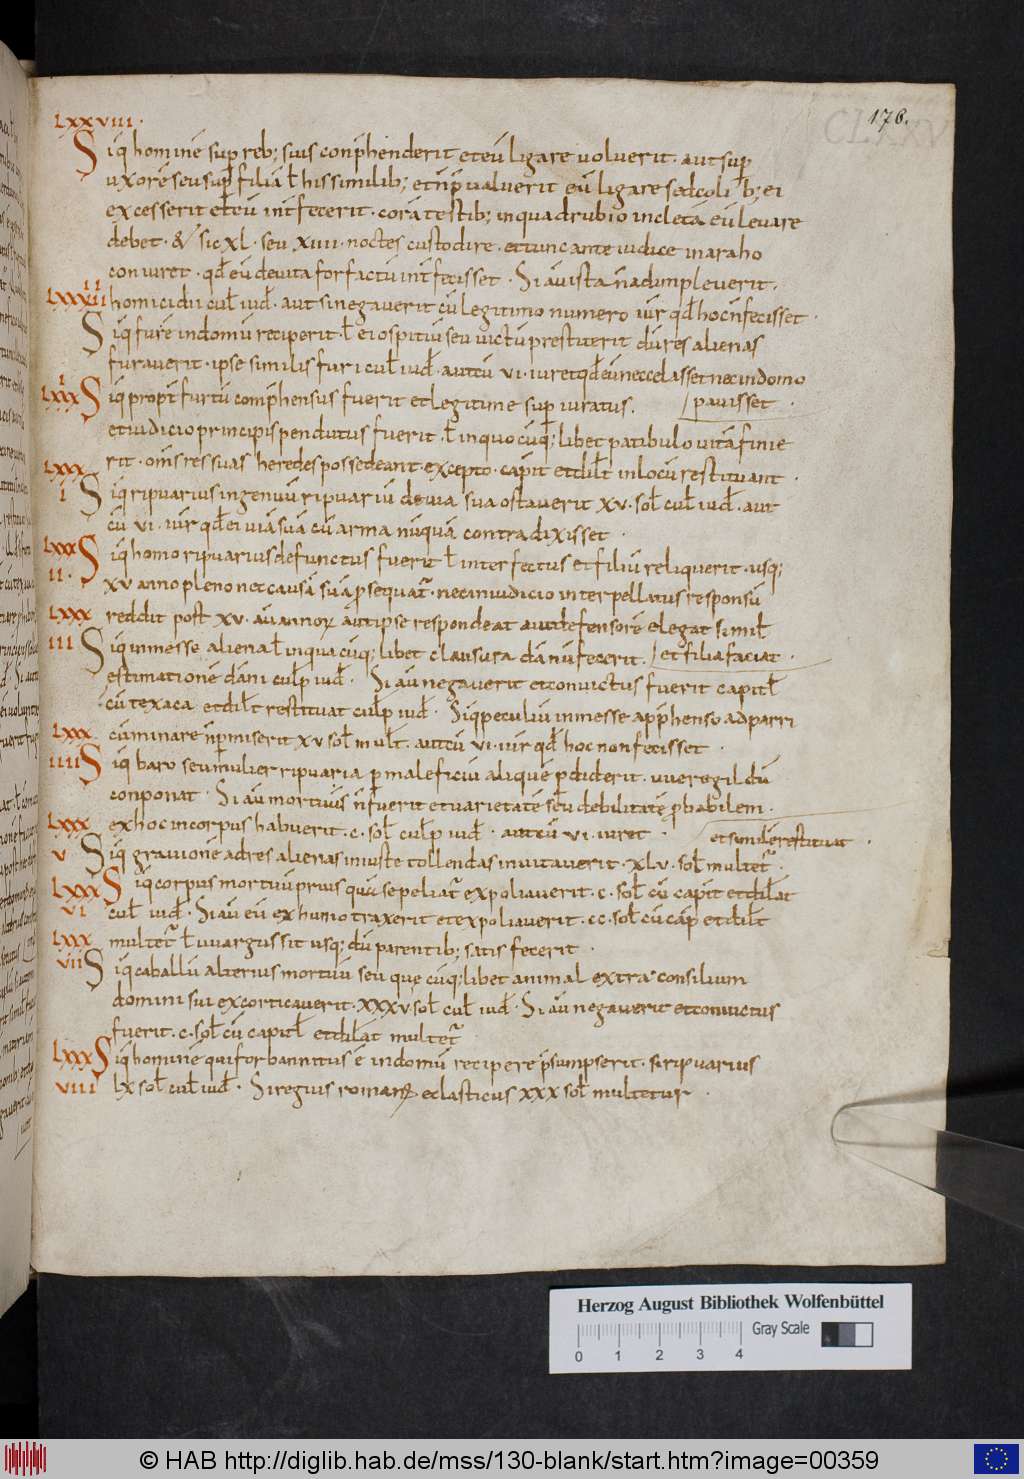 176.
LXXVIII.
Siq̄ hominē sup reb; suis conp̄henderit et eū ligare voluerit. aut sup
uxorē seu sup filiā ł his similib; et n̄ p̄valuerit eū ligare sed b; ei
excesserit et eū int̄fecerit. corā testib; in quadrubio in cleta eū levare
debet. & sic XL. seu XIIII. noctes custodire. et tunc ante iudice in araho
coniuret. qđ eū de vita forfactū int̄fecisset. Si aū ista n̄ adimpleverit.
homicidii cul iuđ. aut si negaverit cū legitimo numero iur qđ hoc n̄ fecisset.
LXXVIIII
Siq̄ furē in domū reciperit. ł ei ospitiū seu victū prestiterit dū res alienas
furaverit. ipse similis furi cul iuđ. aut cū VI. iuret qđ eū nec celasset nec in domo
pavisset.
LXXX Siq̄ propt̄ furtū comp̄hensus fuerit et legitime sup iuratus.
et iudicio principis pendutus fuerit. ł in quocūq; libet patibulo vitā finie
rit. om̄s res suas heredes possedeant. excepto. capit̄ et dilt in locū restituant.
LXXX
I Siq̄ ripuarius ingenuū ripuariū de via sua ostaverit XV. sol cul iuđ. aut
cū VI. iur qđ ei viā suā cū arma nūquā contradixisset.
LXXX
II. Siq̄ homo ripuarius defunctus fuerit ł interfectus et filiū reliquerit. usq;
XV anno pleno nec causā suā p̄sequat̄. nec in iudicio interpellatus responsū
reddit post XV. aū annor aut ipse respondeat aut defensorē elegat simil
et filia faciat.
LXXX
III Siq̄ in messe aliena ł in quacūq; libet clausura dānū fecerit.
estimationē dāni culp iuđ. Si aū negaverit et convictus fuerit capitł
cū texaca et dilt restituat culp iuđ. Siq̄ peculiū in messe app̄henso ad parri
cū minare n̄ p̄miserit XV sol mult. aut cū VI. iur qđ hoc non fecisset.
LXXX
IIII Siq̄ baro seu mulier ripuaria p̄ maleficiū aliquē p̄diderit. uueregildū
conponat. Si aū mortuus n̄ fuerit et varietatē seu debilitatē p̄babilem.
ex hoc in corpus habuerit. C. sol culp iuđ. aut cū VI. iuret.
et similē restituat.
LXXX
V Siq̄ gravionē ad res alienas iniuste tollendas invitaverit. XLV. sol multet̄.
LXXX
VI Siq̄ corpus mortuū prius quā sepeliat̄ expoliaverit. C. sol cū capit̄ et dilat
cul iuđ. Si aū eū ex humo traxerit et expoliaverit. CC. sol cū cap̄ et dilt
multet̄ ł uuargus sit usq; dū parentib; satisfecerit.
LXXX
VII Siq̄ caballū alterius mortuū seu quecūq; libet animal extra consilium
domini sui excorticaverit. XXXV. sol cul iuđ. Si aū negaverit et convictus
fuerit. C. sol cū capitł et dilat multet̄
LXXX
VIII Siq̄ hominē qui forbannitus ē in domū recipere p̄sumpserit. si ripuarius
LX sol cul iuđ. Si regius romanꝰ eclasticus XXX sol multetur.
Herzog August Bibliothek Wolfenbüttel
Gray Scale
0 1 2 3 4
© HAB http://diglib.hab.de/mss/130-blank/start.htm?image=00359